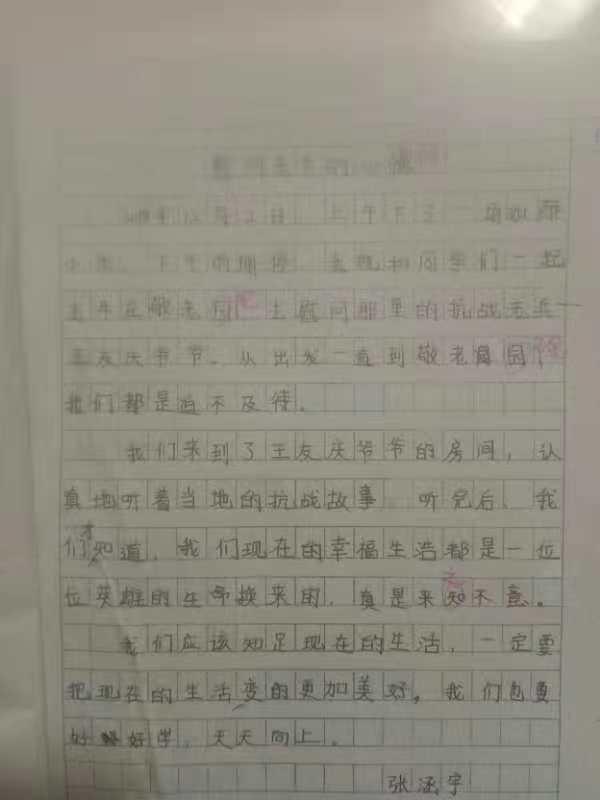 慰问老兵的
年12月2日 上午下了一场
小 下午 我和同学们一起
去 敬老院 去慰问那里的抗战老兵—
王友庆爷爷。从出发一直到敬老园,
我们都是迫不及待。
我们来到了王友庆爷爷的房间,认
真地听着当地的抗战故事。听完后,我
们才知道,我们现在的幸福生活都是一位
位英雄的生命换来的,真是来之不意。
我们应该知足现在的生活,一定要
把现在的生活变的更加美好,我们也要
好好学,天天向上。
张涵宇